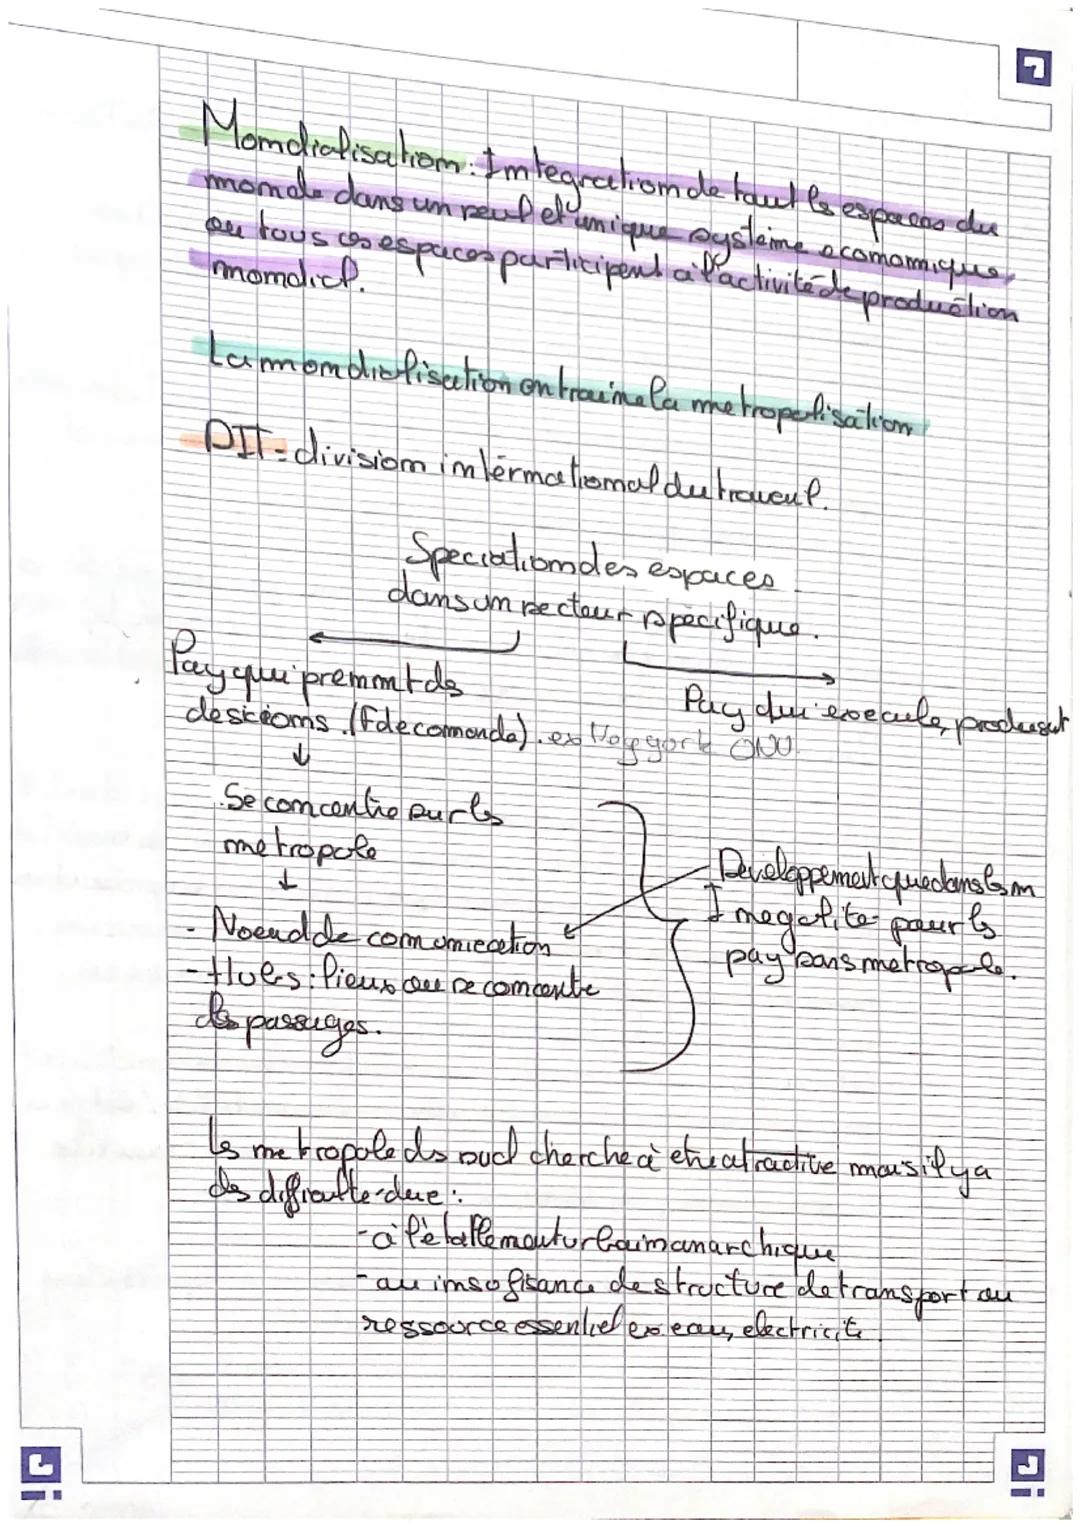 Mondialisation: Integration de tout les espaces du
monde dans un seul et unique systeime economique,
ou tous ces espaces participent à l'activité de production
mondial.
La mondialisation entraine la metropolisation
DIT = division international du travail.
Speciation des espaces
dans un secteur specifique.
Pay qui prennnt ds
desicions. (F de comande). ex
ONU.
Pay qui execute, produisent
Se concentre sur ls
metropole
- Noeud de comunication
- Hubs: lieux ou se concentre
des passages.
Developpement que dans ls m
Inegalite pour ls
pay sans metropole.
Ls metropole ds sud cherche à etre atractive mais il y a
ds difficulte due:
- à l'étallement urbain anarchique
- au insofisance de structure de transport ou
ressource essentiel ex: eau, electricite